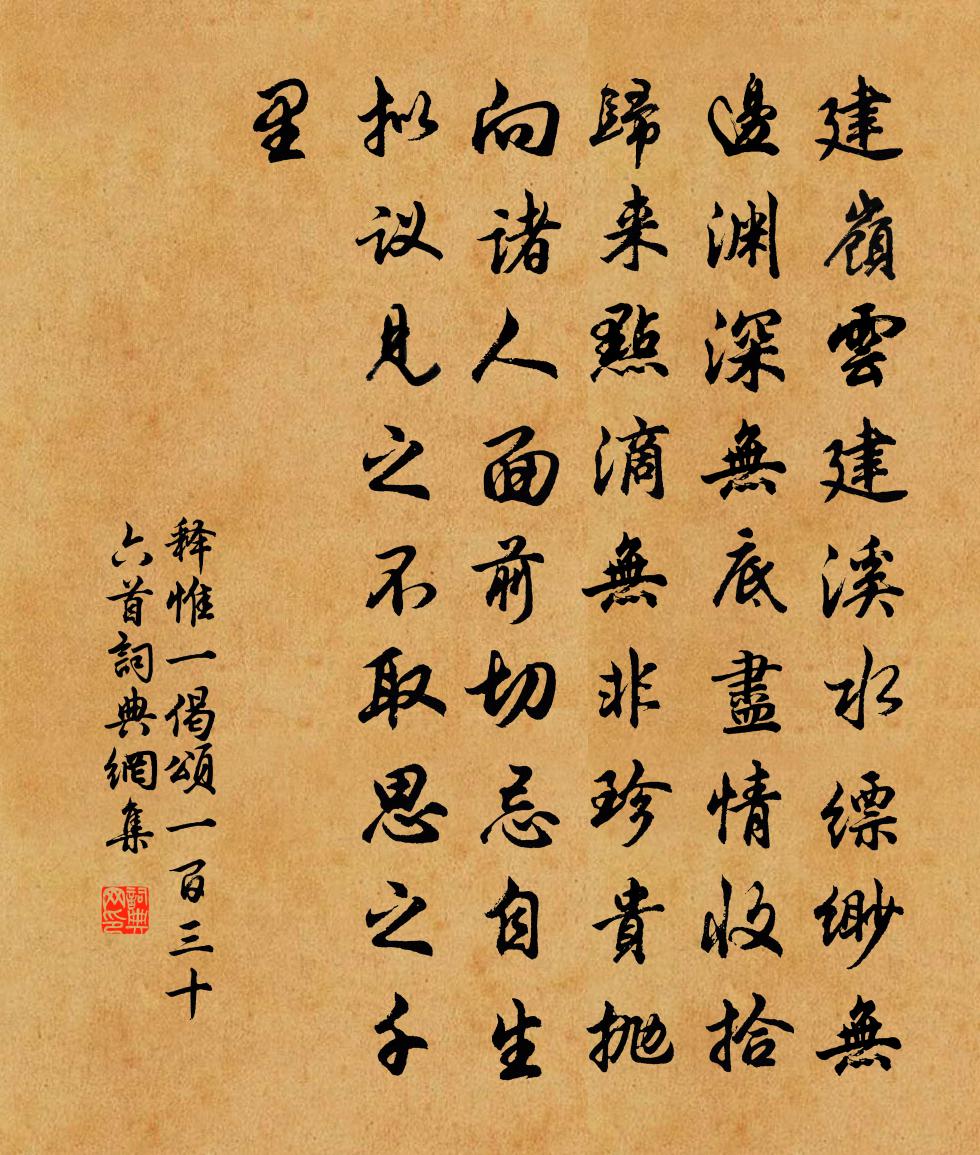 建嶺雲建溪水縹緲無
邊淵深無底盡情收拾
歸来點滴無非珍貴拋
向諸人面前切忌自生
拟议見之不取思之千
里
释惟一偈頌一百三十
六首詞典網集
詞典
网印